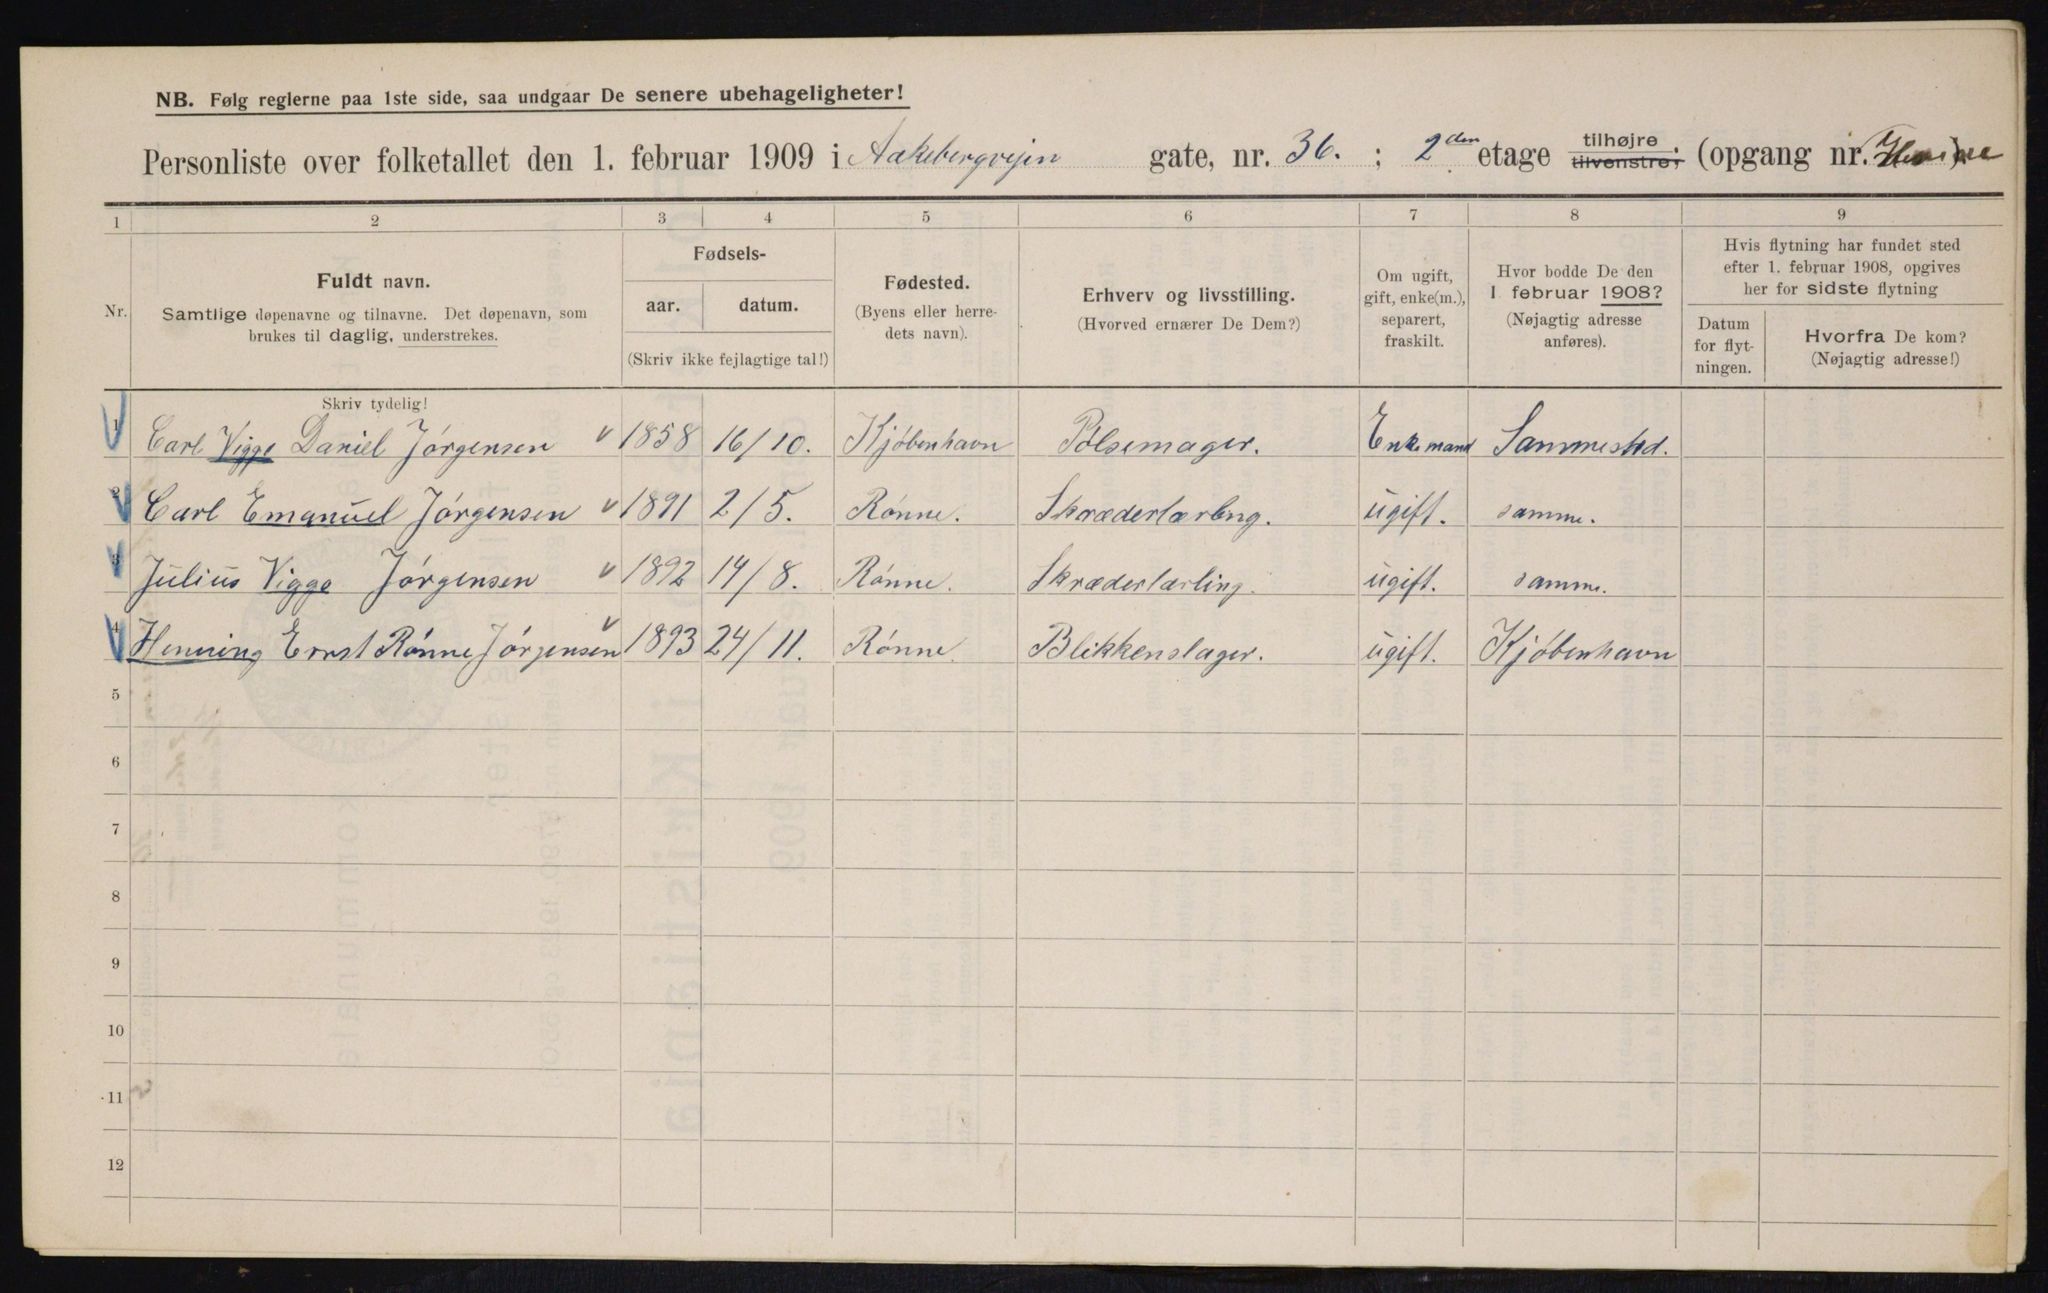 NB. Følg reglerne paa 1ste side, saa undgaar De senere ubehageligheter!
Personliste over folketallet den 1. februar 1909 i Aakebergvejen gate, nr. 36. ; 2den etage tilhøjre tilvenstre; (opgang nr.
1 2 3 4 5 6 7 8 9
Nr.
Fuldt navn.
Samtlige døpenavne og tilnavne. Det døpenavn, som
brukes til daglig, understrekes.
Fødsels-
aar. datum.
(Skriv ikke fejlagtige tal!)
Fødested.
(Byens eller herre-
dets navn).
Erhverv og livsstilling.
(Hvorved ernærer De Dem?)
Om ugift,
gift, enke(m.),
separert,
fraskilt.
Hvor bodde De den
1 februar 1908?
(Nøjagtig adresse
anføres).
Hvis flytning har fundet sted
efter 1. februar 1908, opgives
her for sidste flytning
Datum
for flyt-
ningen.
Hvorfra De kom?
(Nøjagtig adresse!)
Skriv tydelig!
1 Carl Viggo Daniel Jörgensen 1858 16/10. Kjöbenhavn Pölsemager. Enkemand Sammested.
2 Carl Emanuel Jörgensen 1891 2/5. Rönne. Skræderlærling. ugift. samme.
3 Julius Viggo Jörgensen 1892 14/8. Rönne. Skræderlærling. ugift. samme.
4 Henning Ernst Rönne Jörgensen 1893 24/11. Rönne. Blikkenslager. ugift. Kjöbenhavn
5
6
7
8
9
10
11
12